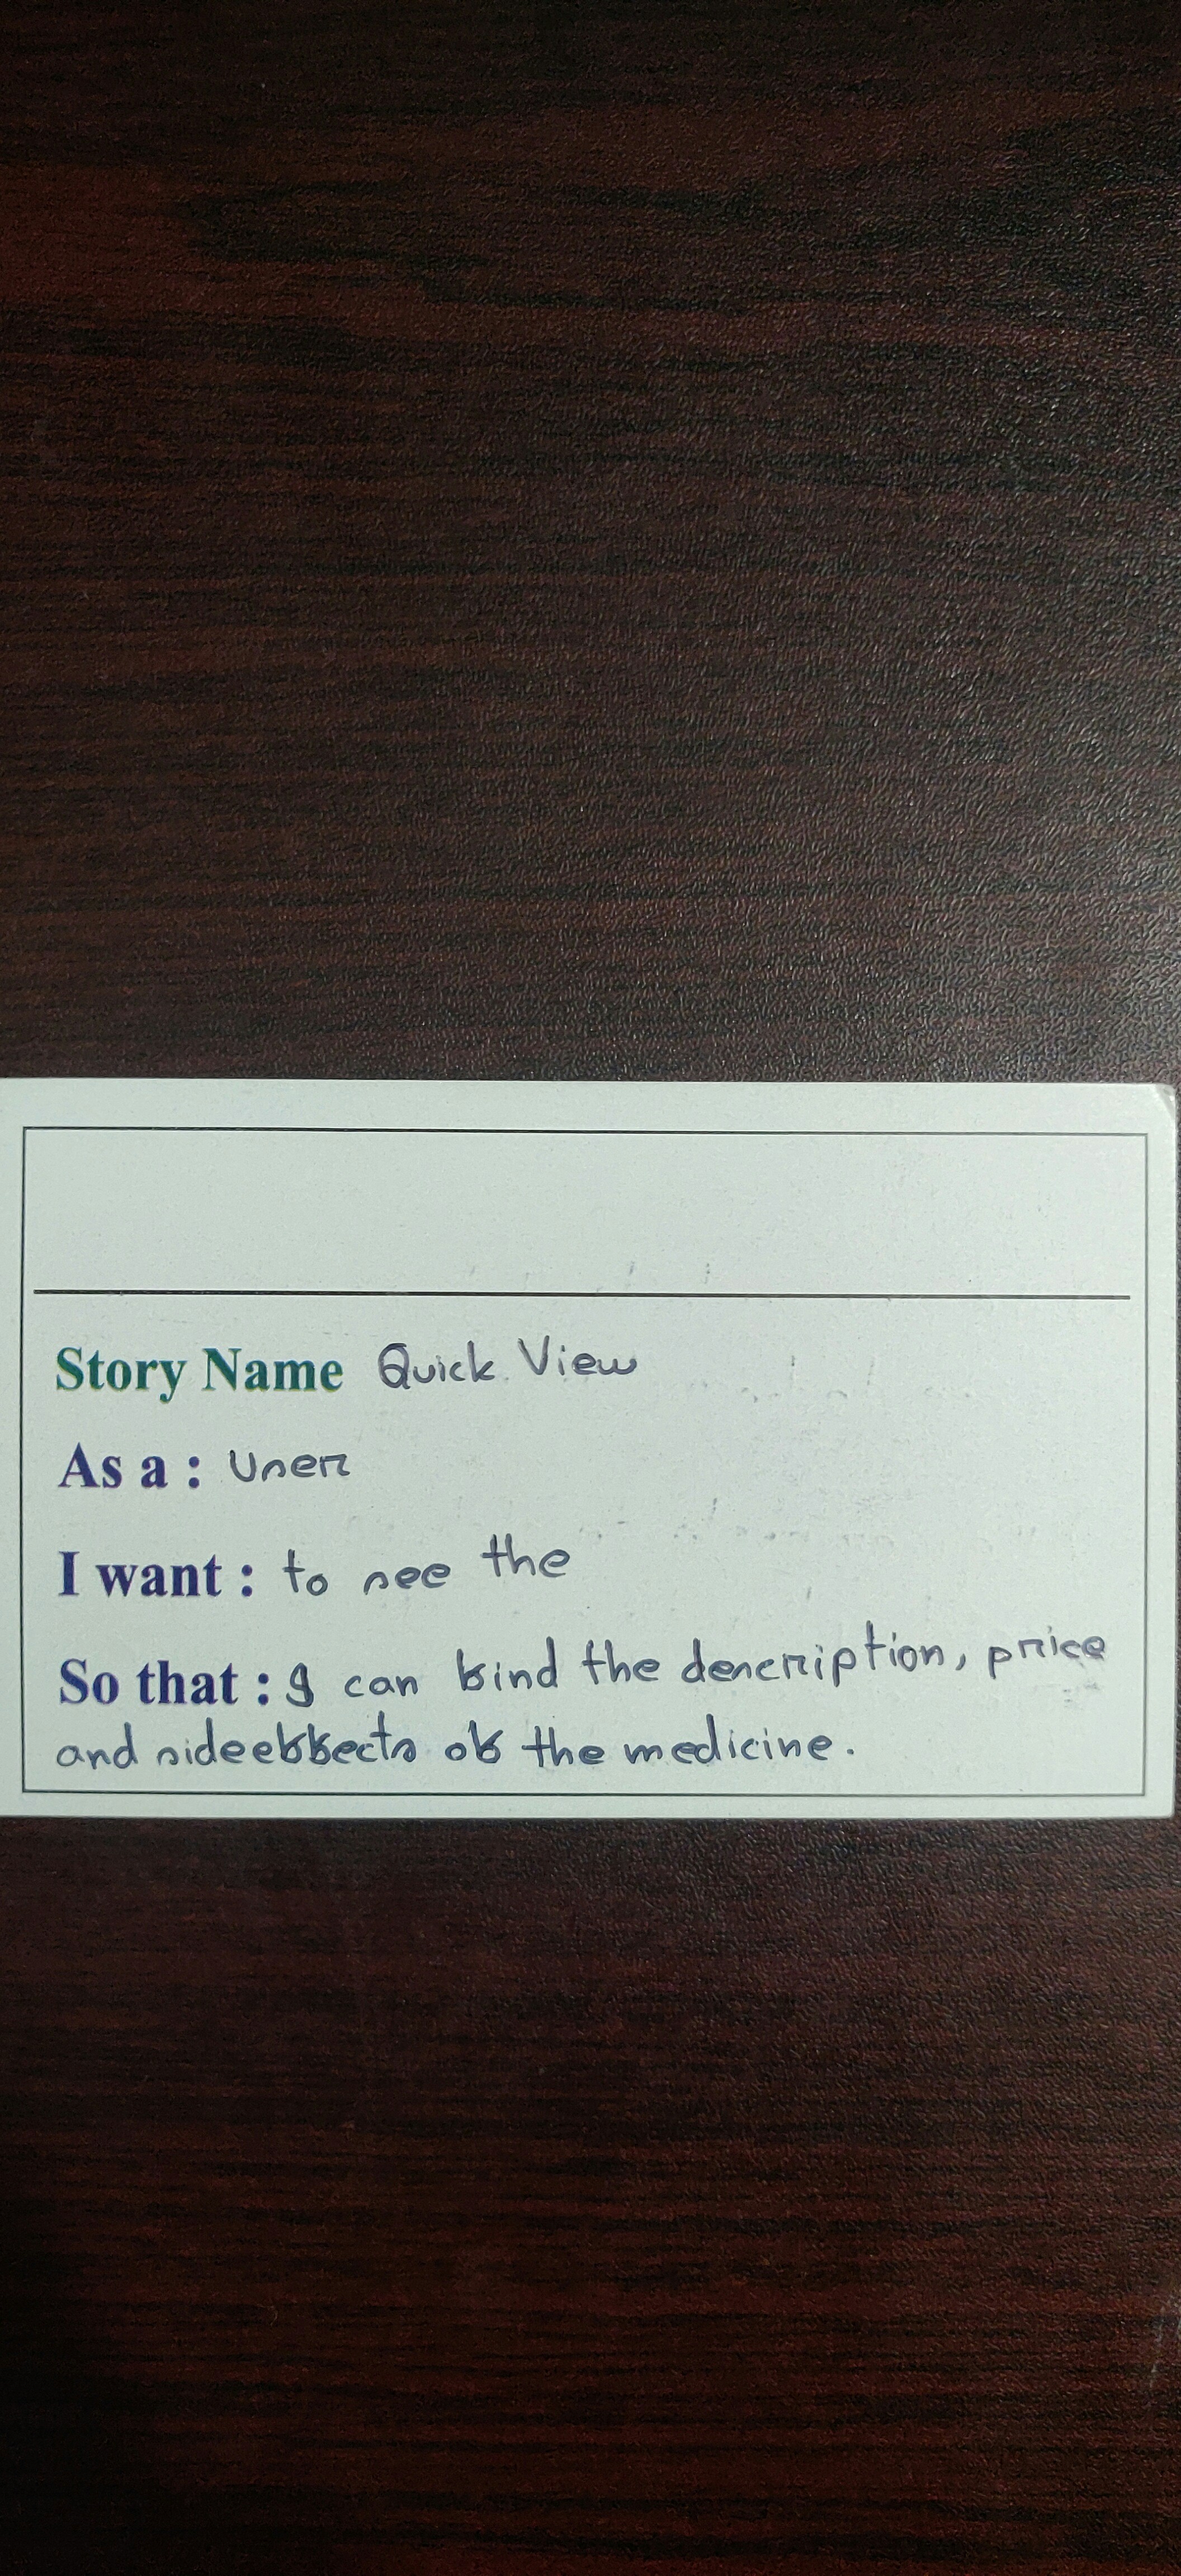 Story Name Quick View
As a : User
I want : to see the
So that : I can find the description, price
and sideeffects of the medicine.